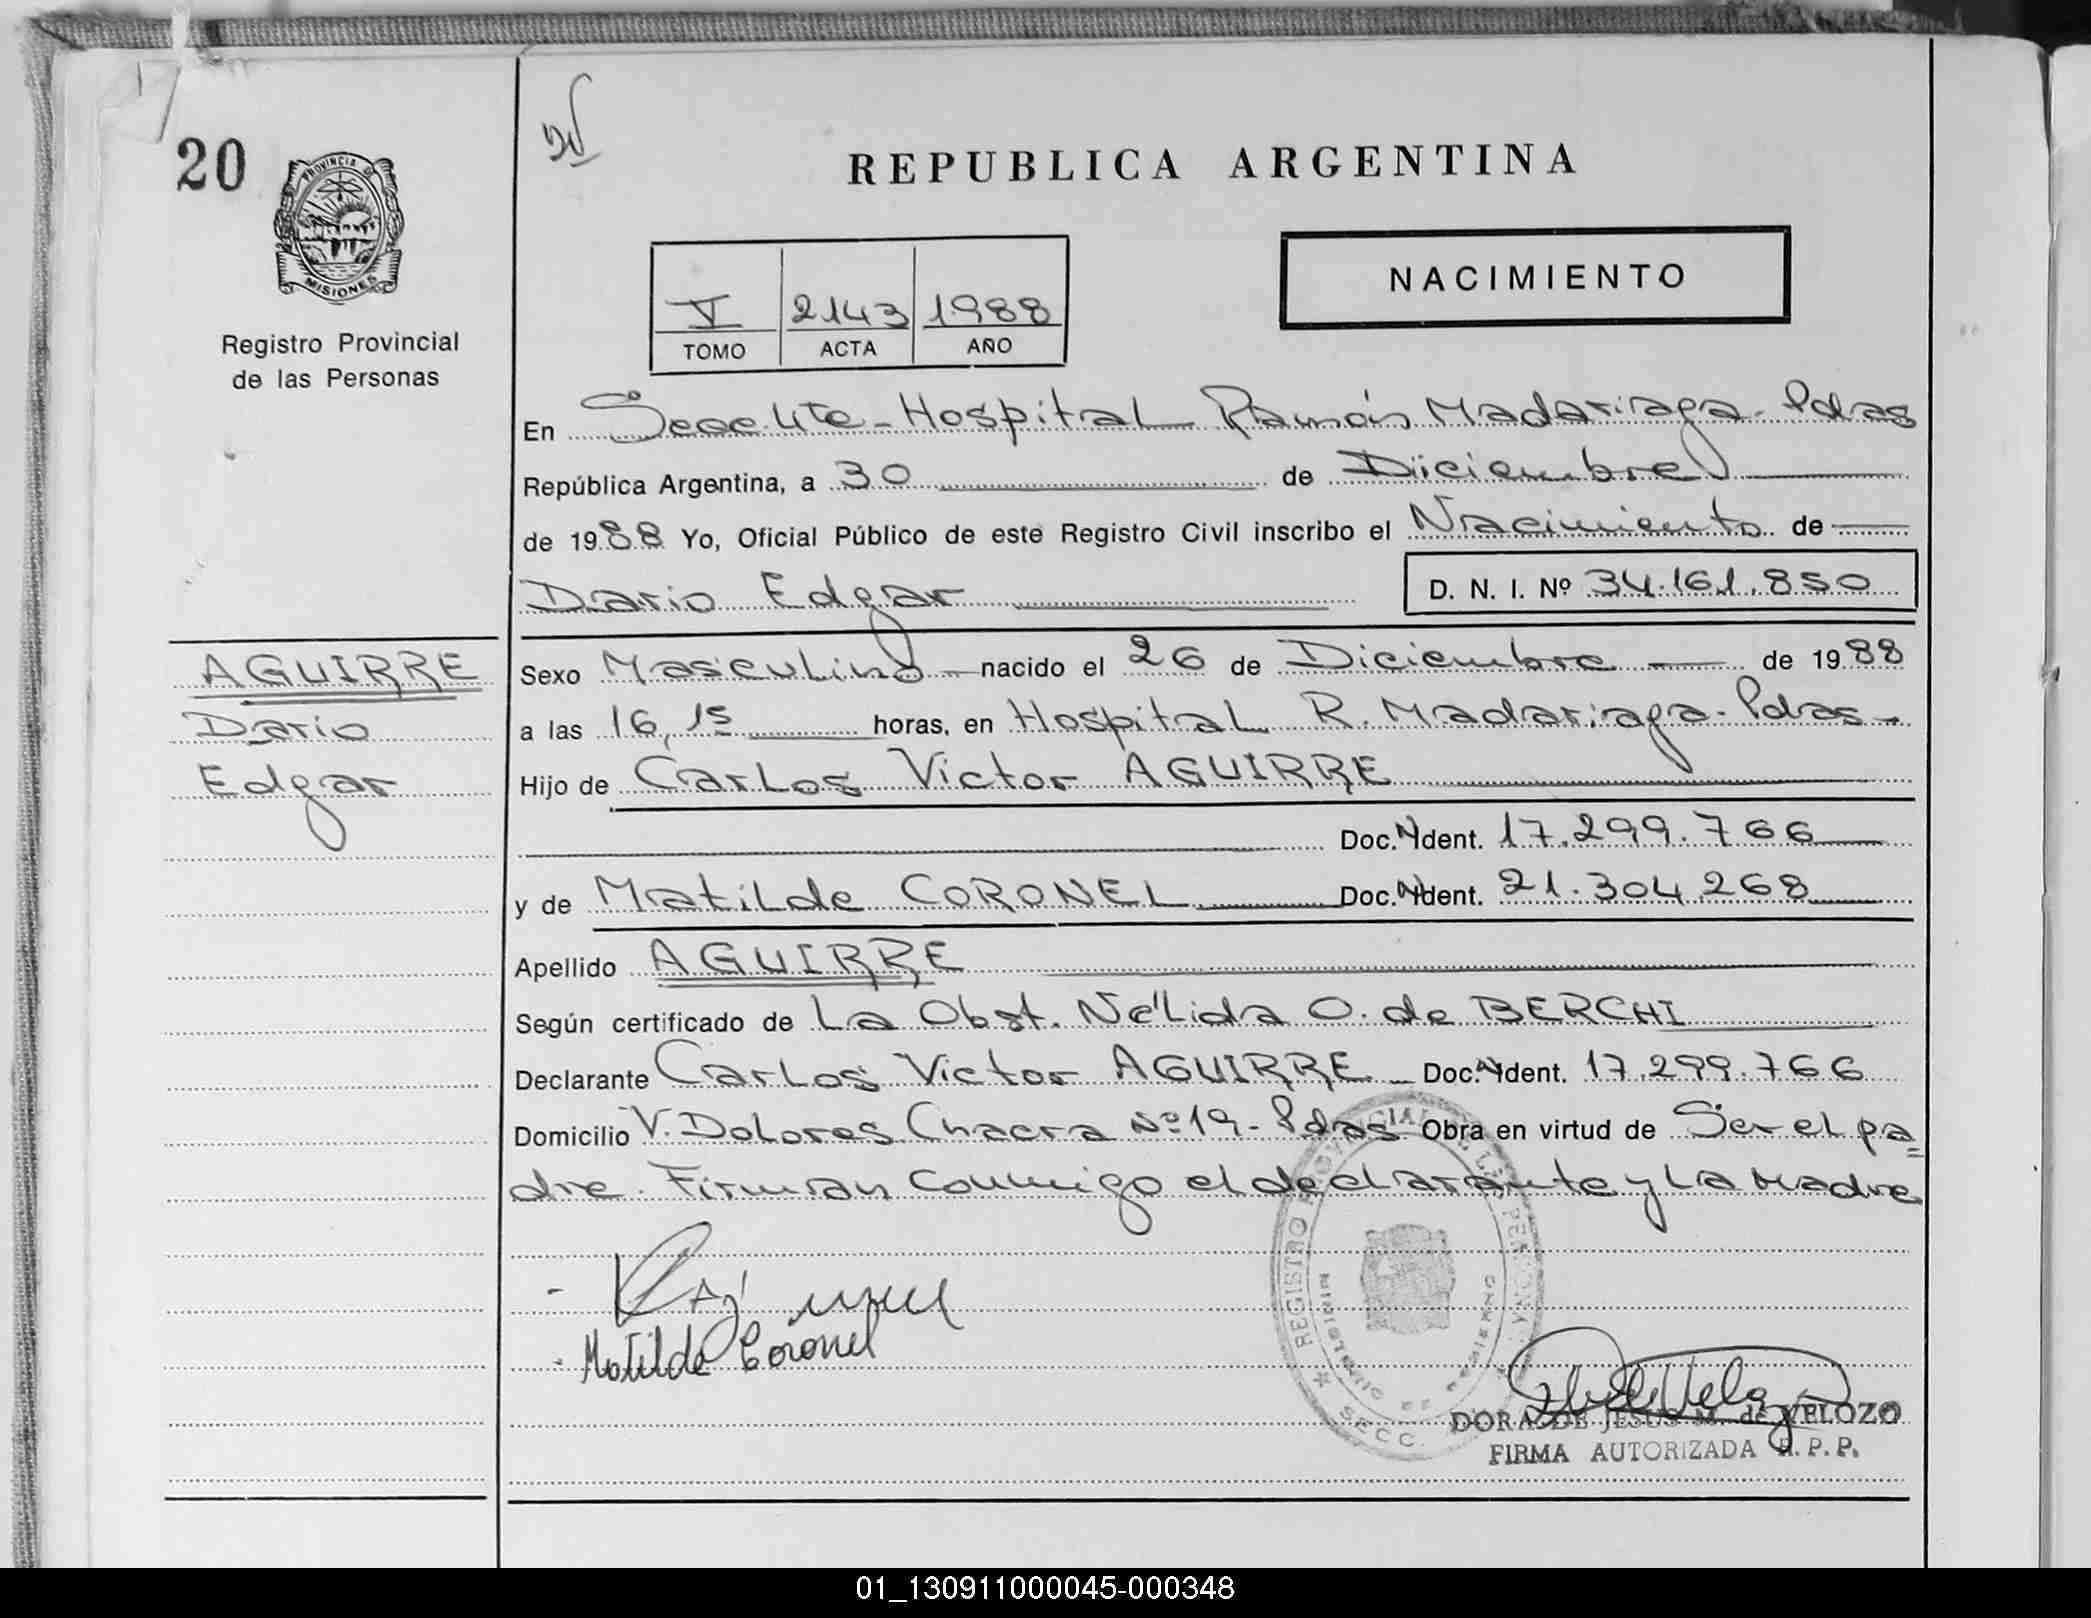 20
PROVINCIA DE
MISIONES
Registro Provincial
de las Personas
REPUBLICA ARGENTINA
NACIMIENTO
V 2143 1988
TOMO ACTA AÑO
En Secc. 4te - Hospital Ramón Madariaga - Pdas
República Argentina, a 30 de Diiciembre
de 1988 Yo, Oficial Público de este Registro Civil inscribo el Nacimiento de
Dario Edgar D. N. I. Nº 34.161.850
AGUIRRE
Dario
Edgar
Sexo Masculino nacido el 26 de Diciembre de 1988
a las 16,15 horas, en Hospital R. Madariaga - Pdas -
Hijo de Carlos Victor AGUIRRE
Doc. Ident. 17.299.766
y de Matilde CORONEL Doc. Ident. 21.304.268
Apellido AGUIRRE
Según certificado de La Obst. Nélida O. de BERCHI
Declarante Carlos Victor AGUIRRE Doc. Ident. 17.299.766
Domicilio V. Dolores Chacra Nº 19 - Pdas Obra en virtud de Ser el pa=
dre. Firman conmigo el declarante y la Madre
Matilde Coronel
REGISTRO PROVINCIAL DE LAS PERSONAS
SECC.
DORA DE JESUS M. de VELOZO
FIRMA AUTORIZADA R.P.P.
01_130911000045-000348